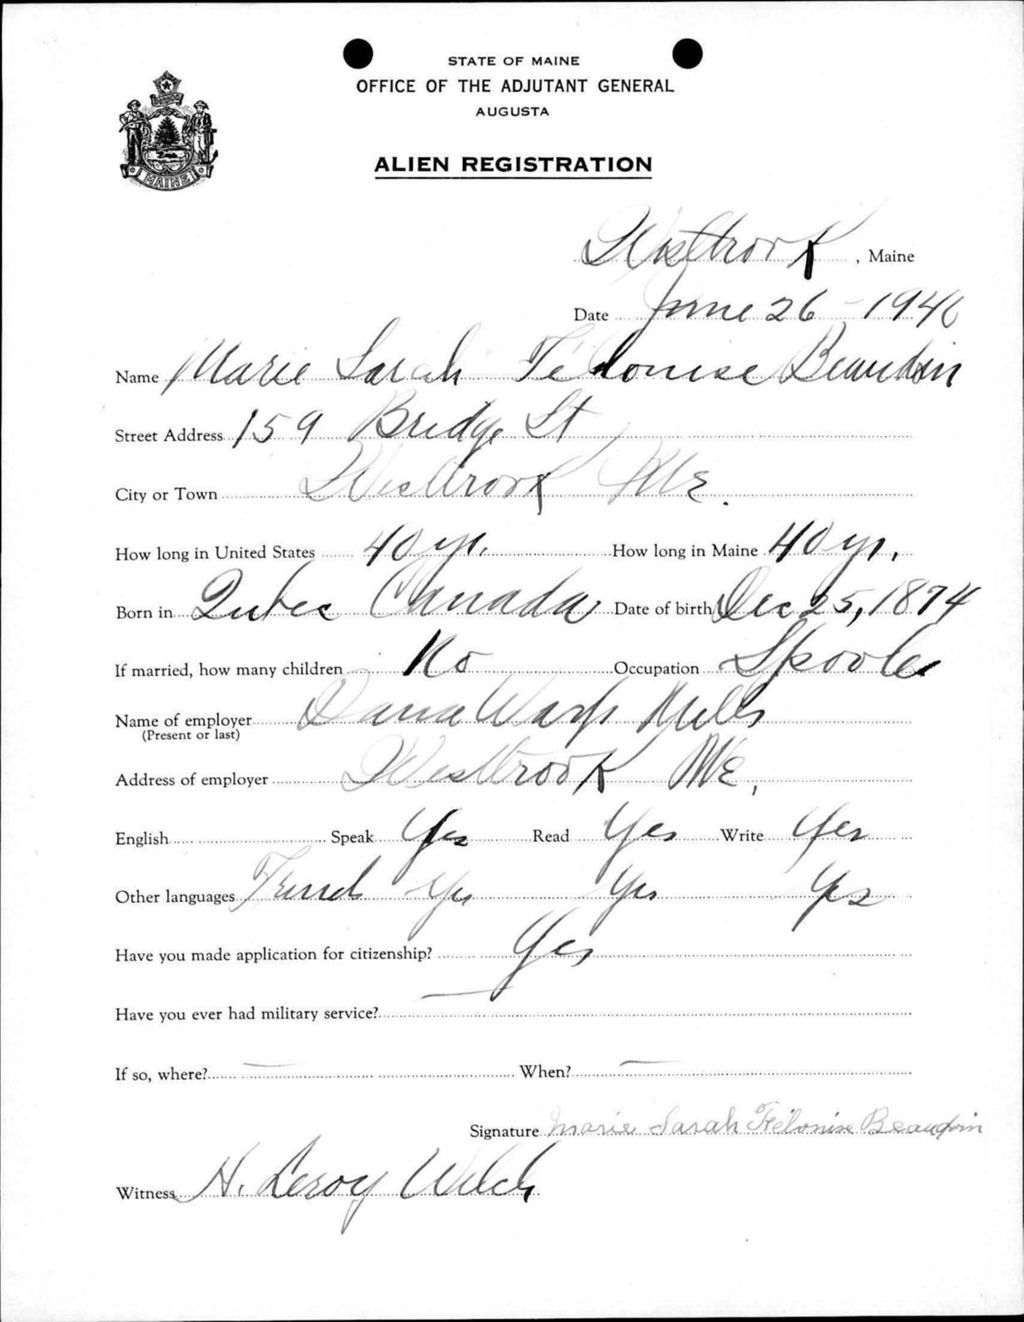 STATE OF MAINE
OFFICE OF THE ADJUTANT GENERAL
AUGUSTA
ALIEN REGISTRATION
MAINE
Westbrook, Maine
Date June 26 - 1940
Name Marie Sarah Félonise Beaudoin
Street Address 159 Bridge St
City or Town Westbrook Me.
How long in United States 40 yr. How long in Maine 40 yr.
Born in Qubec Canada Date of birth Dec 25, 1874
If married, how many children No Occupation Spooler
Name of employer Dana Warp Mills
(Present or last)
Address of employer Westbrook Me.
English Speak Yes Read Yes Write Yes
Other languages French Yes Yes Yes
Have you made application for citizenship? Yes
Have you ever had military service? —
If so, where? — When? —
Signature Marie Sarah Félonise Beaudoin
Witness H. Leroy Welch